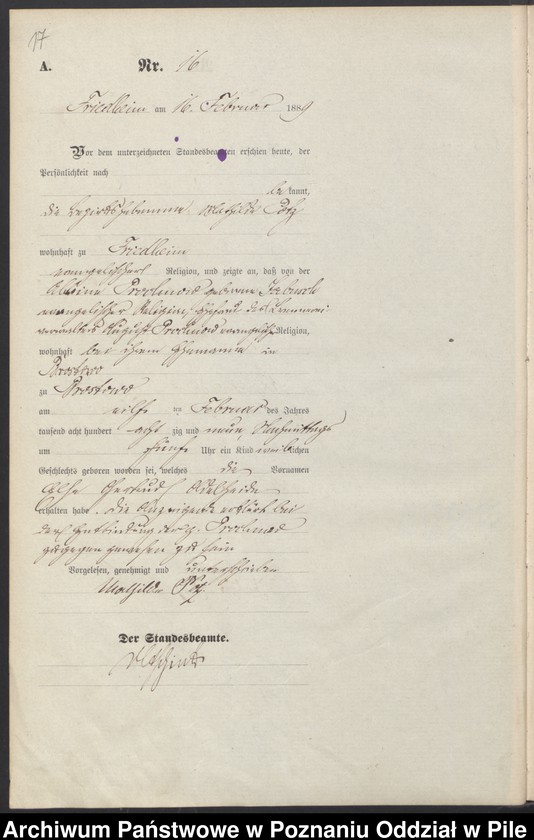 17
A. Nr. 16
Friedheim am 16. Februar 1889
Vor dem unterzeichneten Standesbeamten erschien heute, der
Persönlichkeit nach
be kannt,
die Bezirkshebamme Mathilde
wohnhaft zu Friedheim
evangelischer Religion, und zeigte an, daß von der
Prochnow geborene
evangelischer Religion, Ehefrau des
verwalters August Prochnow evangelischer Religion,
wohnhaft bei ihrem Ehemanne in
Brostowo
zu Brostowo
am elften Februar des Jahres
tausend acht hundert acht zig und neun, Nachmittags
um fünf Uhr ein Kind weiblichen
Geschlechts geboren worden sei, welches die Vornamen
Gertrud Adelheide
erhalten habe. Die Anzeigende erklärt bei
der Entbindung der p. Prochnow
zugegen gewesen zu sein
Vorgelesen, genehmigt und unterschrieben
Mathilde
Der Standesbeamte.
Archiwum Państwowe w Poznaniu Oddział w Pile